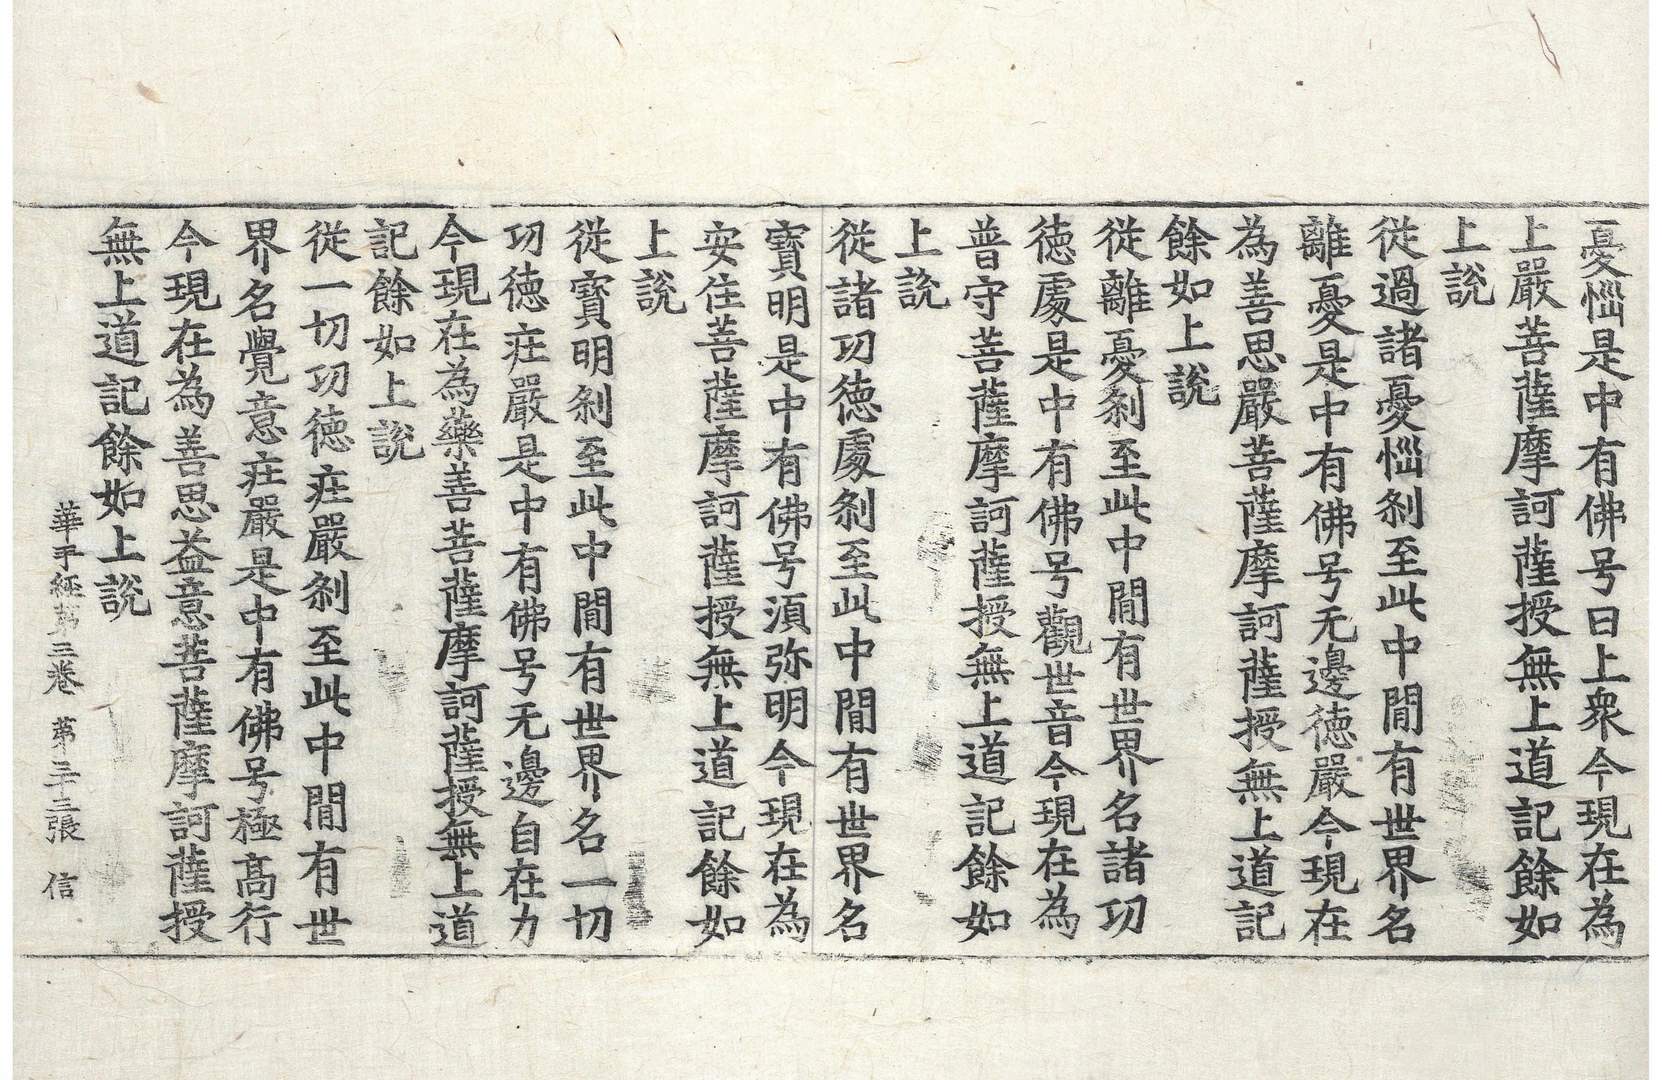 憂惱是中有佛号曰上衆今現在為
上嚴菩薩摩訶薩授無上道記餘如
上說
從過諸憂惱刹至此中閒有世界名
離憂是中有佛号无邊德嚴今現在
為善思嚴菩薩摩訶薩授無上道記
餘如上說
從離憂刹至此中閒有世界名諸功
德處是中有佛号觀世音今現在為
普守菩薩摩訶薩授無上道記餘如
上說
從諸功德處刹至此中閒有世界名
寶明是中有佛号須弥明今現在為
安住菩薩摩訶薩授無上道記餘如
上說
從寶明刹至此中閒有世界名一切
功德莊嚴是中有佛号无邊自在力
今現在為藥善菩薩摩訶薩授無上道
記餘如上說
從一切功德莊嚴刹至此中閒有世
界名覺意莊嚴是中有佛号極高行
今現在為善思益意菩薩摩訶薩授
無上道記餘如上說
華手經第三卷 第二十三張 信